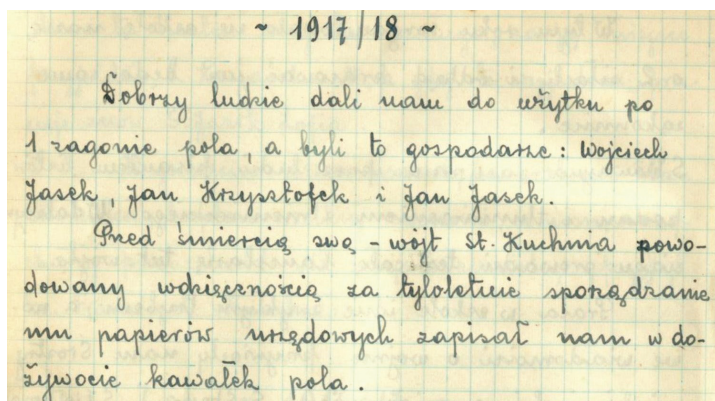 ~ 1917/18 ~
Dobrzy ludzie dali nam do użytku po
1 zagonie pola, a byli to gospodarze: Wojciech
Jasek, Jan Krzysztofek i Jan Jasek.
Przed śmiercią swą – wójt St. Kuchnia powo-
dowany wdzięcznością za tyloletnie sporządzanie
mu papierów urzędowych zapisał nam w do-
żywocie kawałek pola.